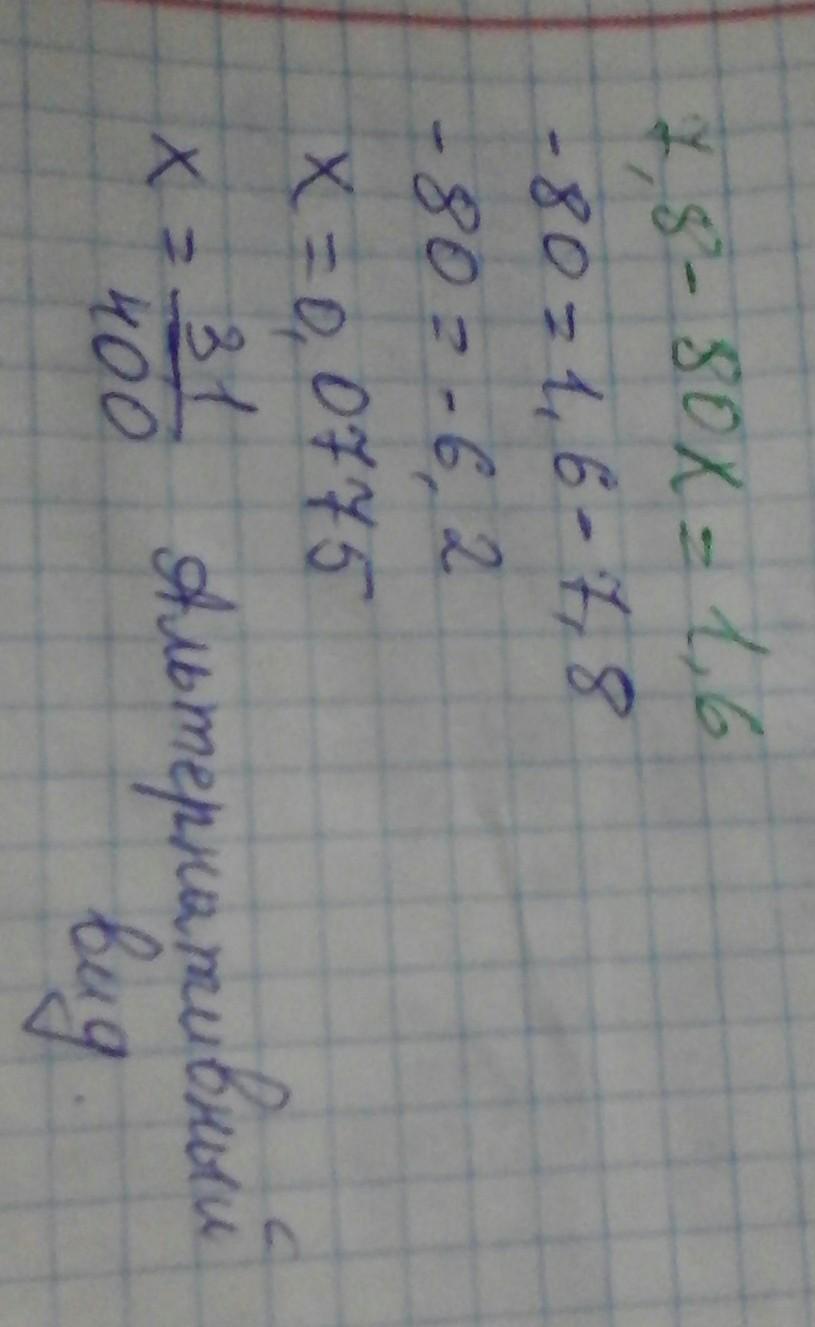 7,8 - 80x = 1,6
- 80 = 1,6 - 7,8
- 80 = - 6,2
x = 0,0775
x = 31/400 Альтернативный
вид.